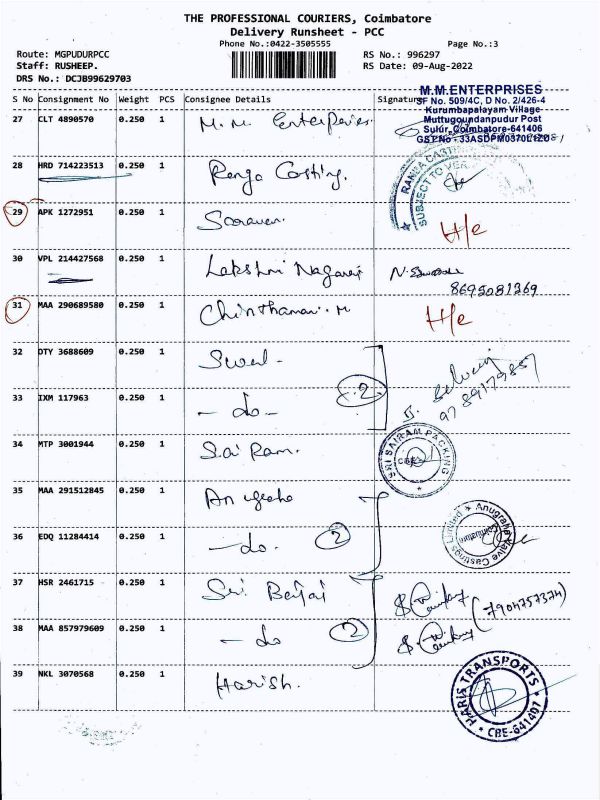 THE PROFESSIONAL COURIERS, Coimbatore
Delivery Runsheet - PCC
Phone No.:0422-3505555 Page No.:3
Route: MGPUDURPCC RS No.: 996297
Staff: RUSHEEP. RS Date: 09-Aug-2022
DRS No.: DCJB99629703
M.M.ENTERPRISES
S No Consignment No Weight PCS Consignee Details Signature
SF No. 509/4C, D No. 2/426-4
Kurumbapalayam Village
Muttugoundanpudur Post
Sulur, Coimbatore-641406
GST No - 33ASDPM0370L1ZO
27 CLT 4890570 0.250 1 M. M. Enterprises
28 HRD 714223513 0.250 1 Ranga Casting. SUBJECT TO
29 APK 1272951 0.250 1 Saravan. H/c
30 VPL 214427568 0.250 1 Lakshmi Nagaraj
8695081269
31 MAA 290689580 0.250 1 Chinthamani. M H/c
32 DTY 3688609 0.250 1
33 IXM 117963 0.250 1 - do - 2
34 MTP 3001944 0.250 1 Sai Ram. SRI SAIRAM PACKING
35 MAA 291512845 0.250 1 Anugraha
36 EDQ 11284414 0.250 1 - do. 2 Anugraha Valve Castings Limited Coimbatore
37 HSR 2461715 0.250 1 Sri Balaji (7904757374)
38 MAA 857979609 0.250 1 - do 2
39 NKL 3070568 0.250 1 Harish. PARIS TRANSPORTS CBE-641407